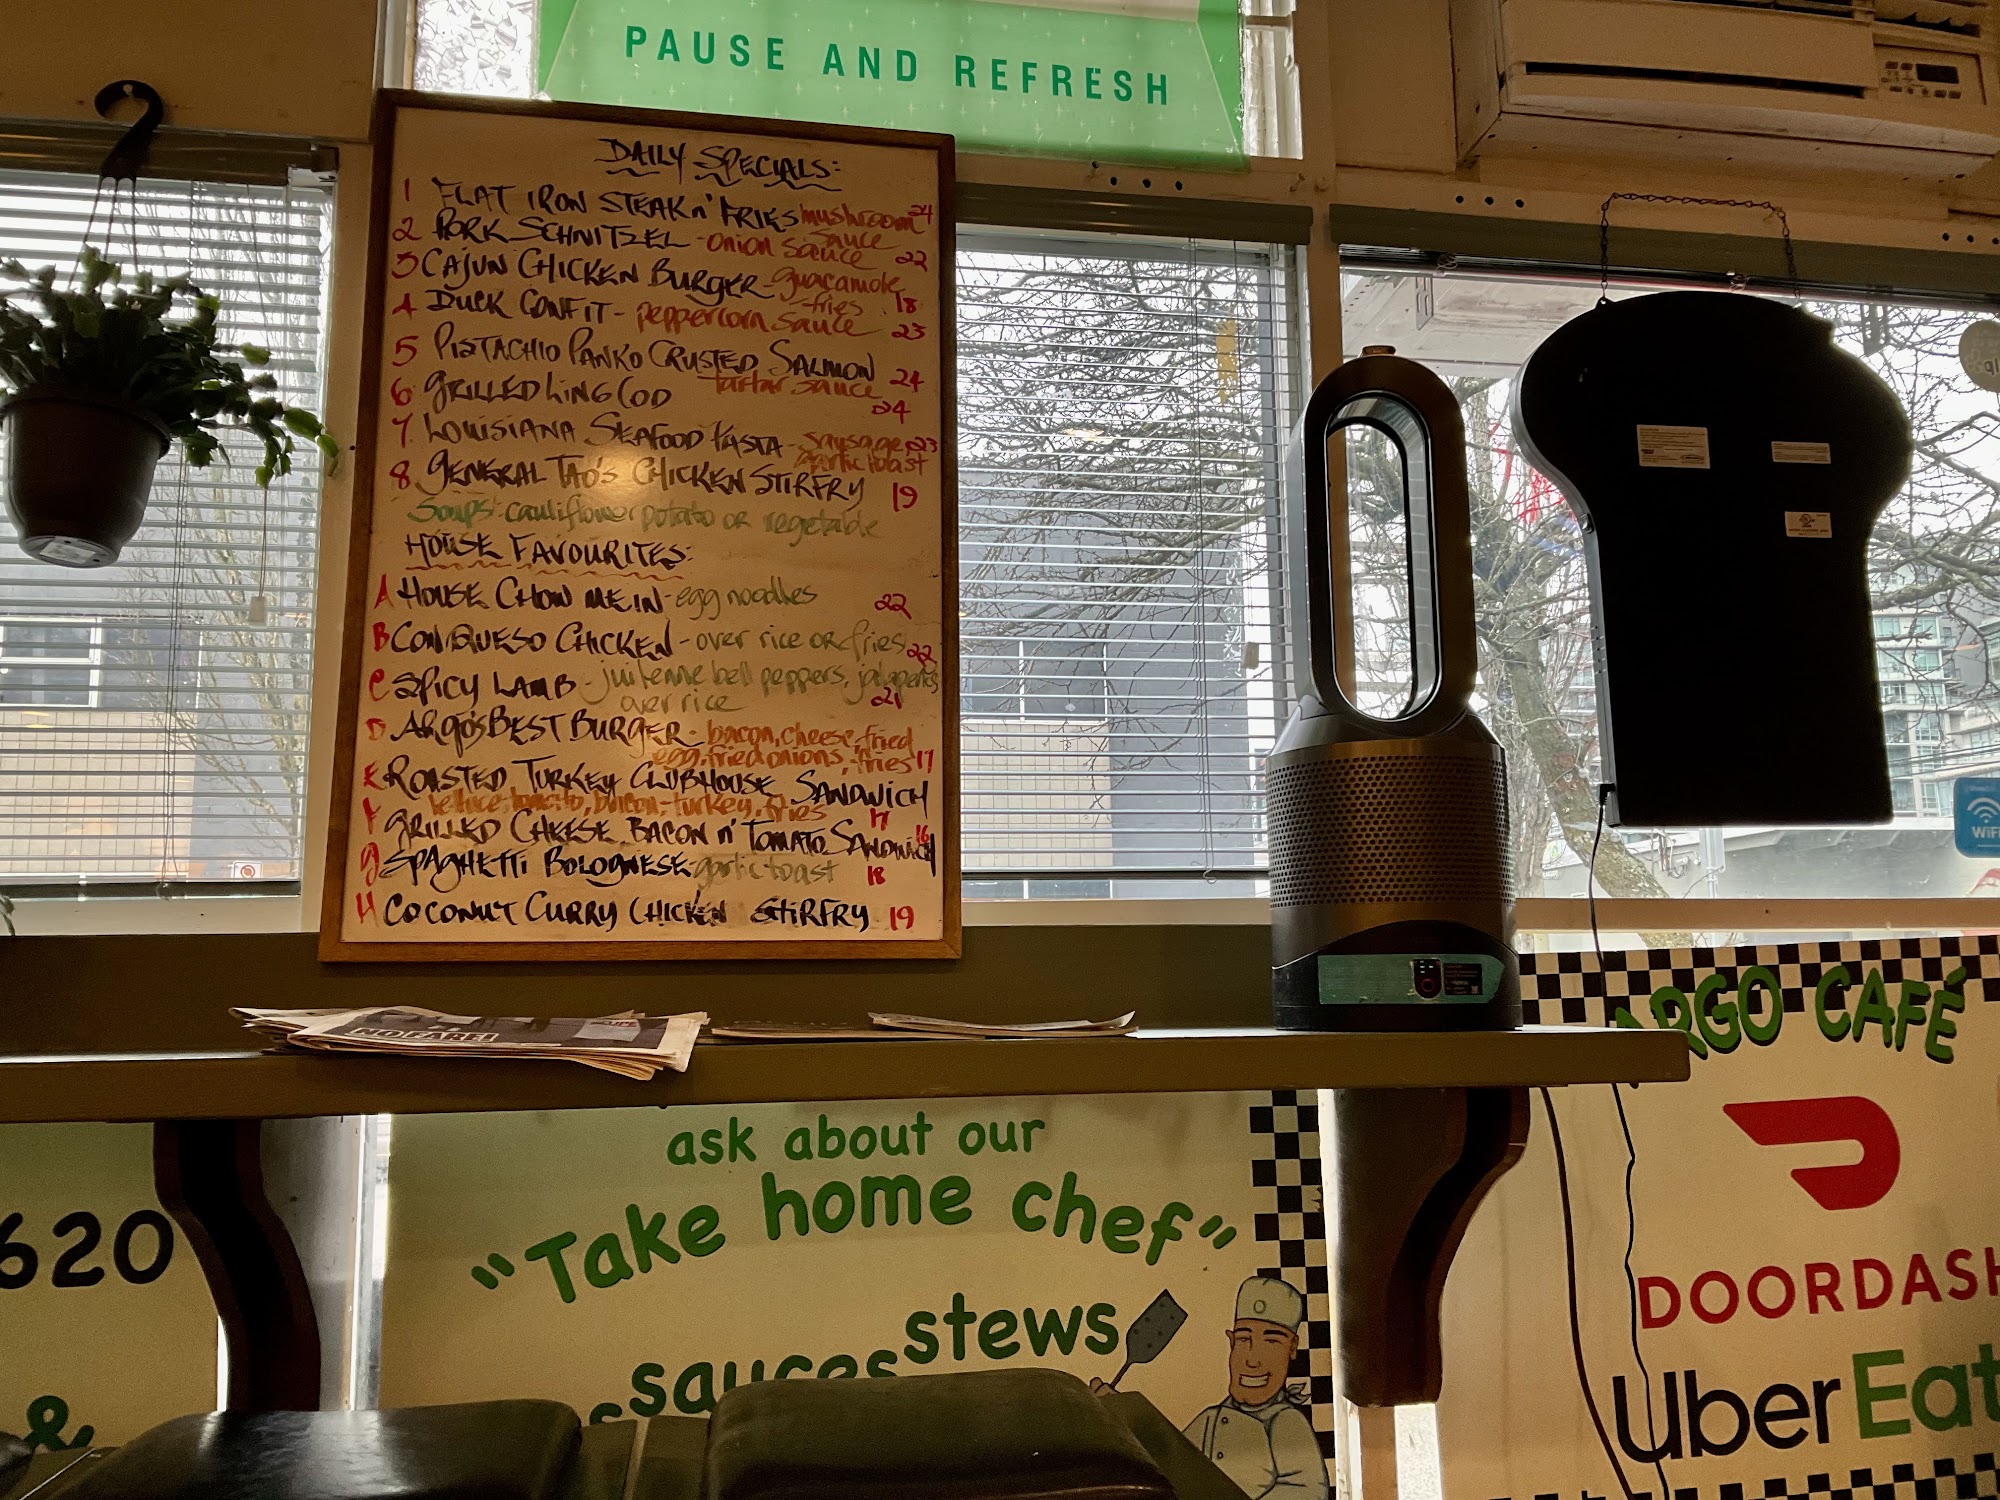 PAUSE AND REFRESH
DAILY SPECIALS:
1 FLAT IRON STEAK n' FRIES mushroom sauce 24
2 PORK SCHNITZEL - onion sauce 22
3 CAJUN CHICKEN BURGER - guacamole - fries 18
4 DUCK CONFIT - peppercorn sauce 23
5 PISTACHIO PANKO CRUSTED SALMON 24
6 GRILLED LING COD tartar sauce 24
7 LOUISIANA SEAFOOD PASTA - sausage, garlic toast 23
8 GENERAL TAO'S CHICKEN STIRFRY 19
Soups: cauliflower potato or vegetable
HOUSE FAVOURITES:
A HOUSE CHOW MEIN - egg noodles 22
B CON QUESO CHICKEN - over rice or fries 22
C SPICY LAMB - julienne bell peppers, jalapeños over rice 21
D ARGO'S BEST BURGER - bacon, cheese, fried egg, fried onions, fries 17
E ROASTED TURKEY CLUBHOUSE SANDWICH
lettuce, tomato, bacon, turkey, fries 17
F GRILLED CHEESE, BACON n' TOMATO SANDWICH 16
G SPAGHETTI BOLOGNESE - garlic toast 18
H COCONUT CURRY CHICKEN STIRFRY 19
NO FARE!
WiFi
ARGO CAFÉ
ask about our
"Take home chef"
stews
sauces
620
&
DOORDASH
Uber Eats